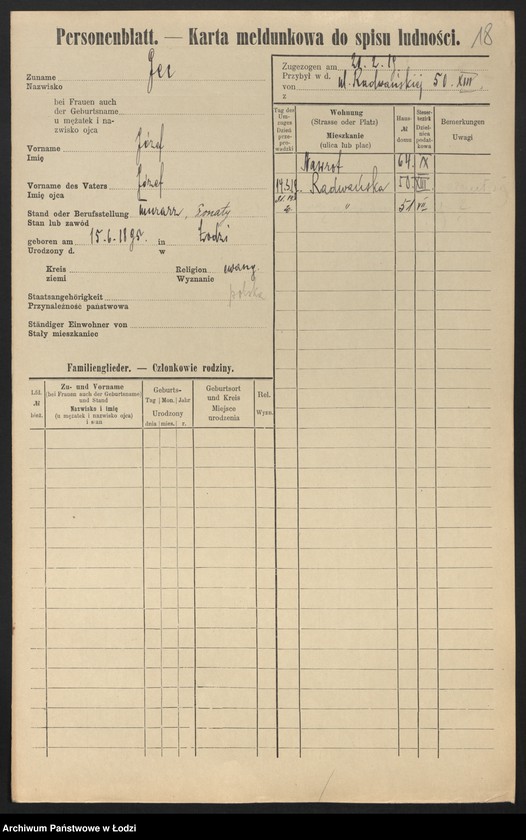 Personenblatt. — Karta meldunkowa do spisu ludności. 18
Zuname
Nazwisko
bei Frauen auch
der Geburtsname
u mężatek i na-
zwisko ojca
Vorname Józef
Imię
Vorname des Vaters Józef
Imię ojca
Stand oder Berufsstellung murarz, żonaty
Stan lub zawód
geboren am 15.6.1895. in Łodzi
Urodzony d. w
Kreis
ziemi
Religion ewang.
Wyznanie
Staatsangehörigkeit polska
Przynależność państwowa
Ständiger Einwohner von
Stały mieszkaniec
Zugezogen am
Przybył w d.
von ul. Radwańskiej 50. XIII
z
Tag des Um-zuges
Dzień prze-prowadzki
Wohnung
(Strasse oder Platz)
Mieszkanie
(ulica lub plac)
Haus-
№
domu
Steuer-bezirk
Dzielnica podatkowa
Bemerkungen
Uwagi
Nawrot 64. IX
Radwańska 50. XIII
" 51 VII
Familienglieder. — Członkowie rodziny.
Lfd.
№
bież.
Zu- und Vorname
(bei Frauen auch der Geburtsname)
und Stand
Nazwisko i imię
(u mężatek i nazwisko ojca)
i stan
Geburts-
Tag Mon. Jahr
Urodzony
dnia mies. r.
Geburtsort
und Kreis
Miejsce
urodzenia
Rel.
Wyzn.
Archiwum Państwowe w Łodzi